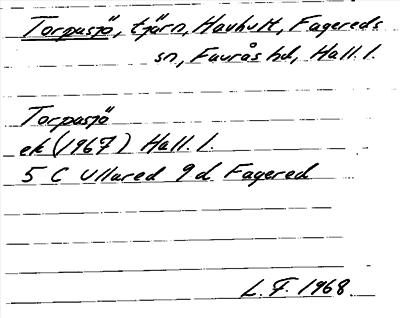 Torpasjö, tjärn, Havhult, Fagereds
sn, Faurås hd, Hall. l.
Torpasjö
ek (1967) Hall. l.
5 C Ullared 9 d Fagered
L. F. 1968.